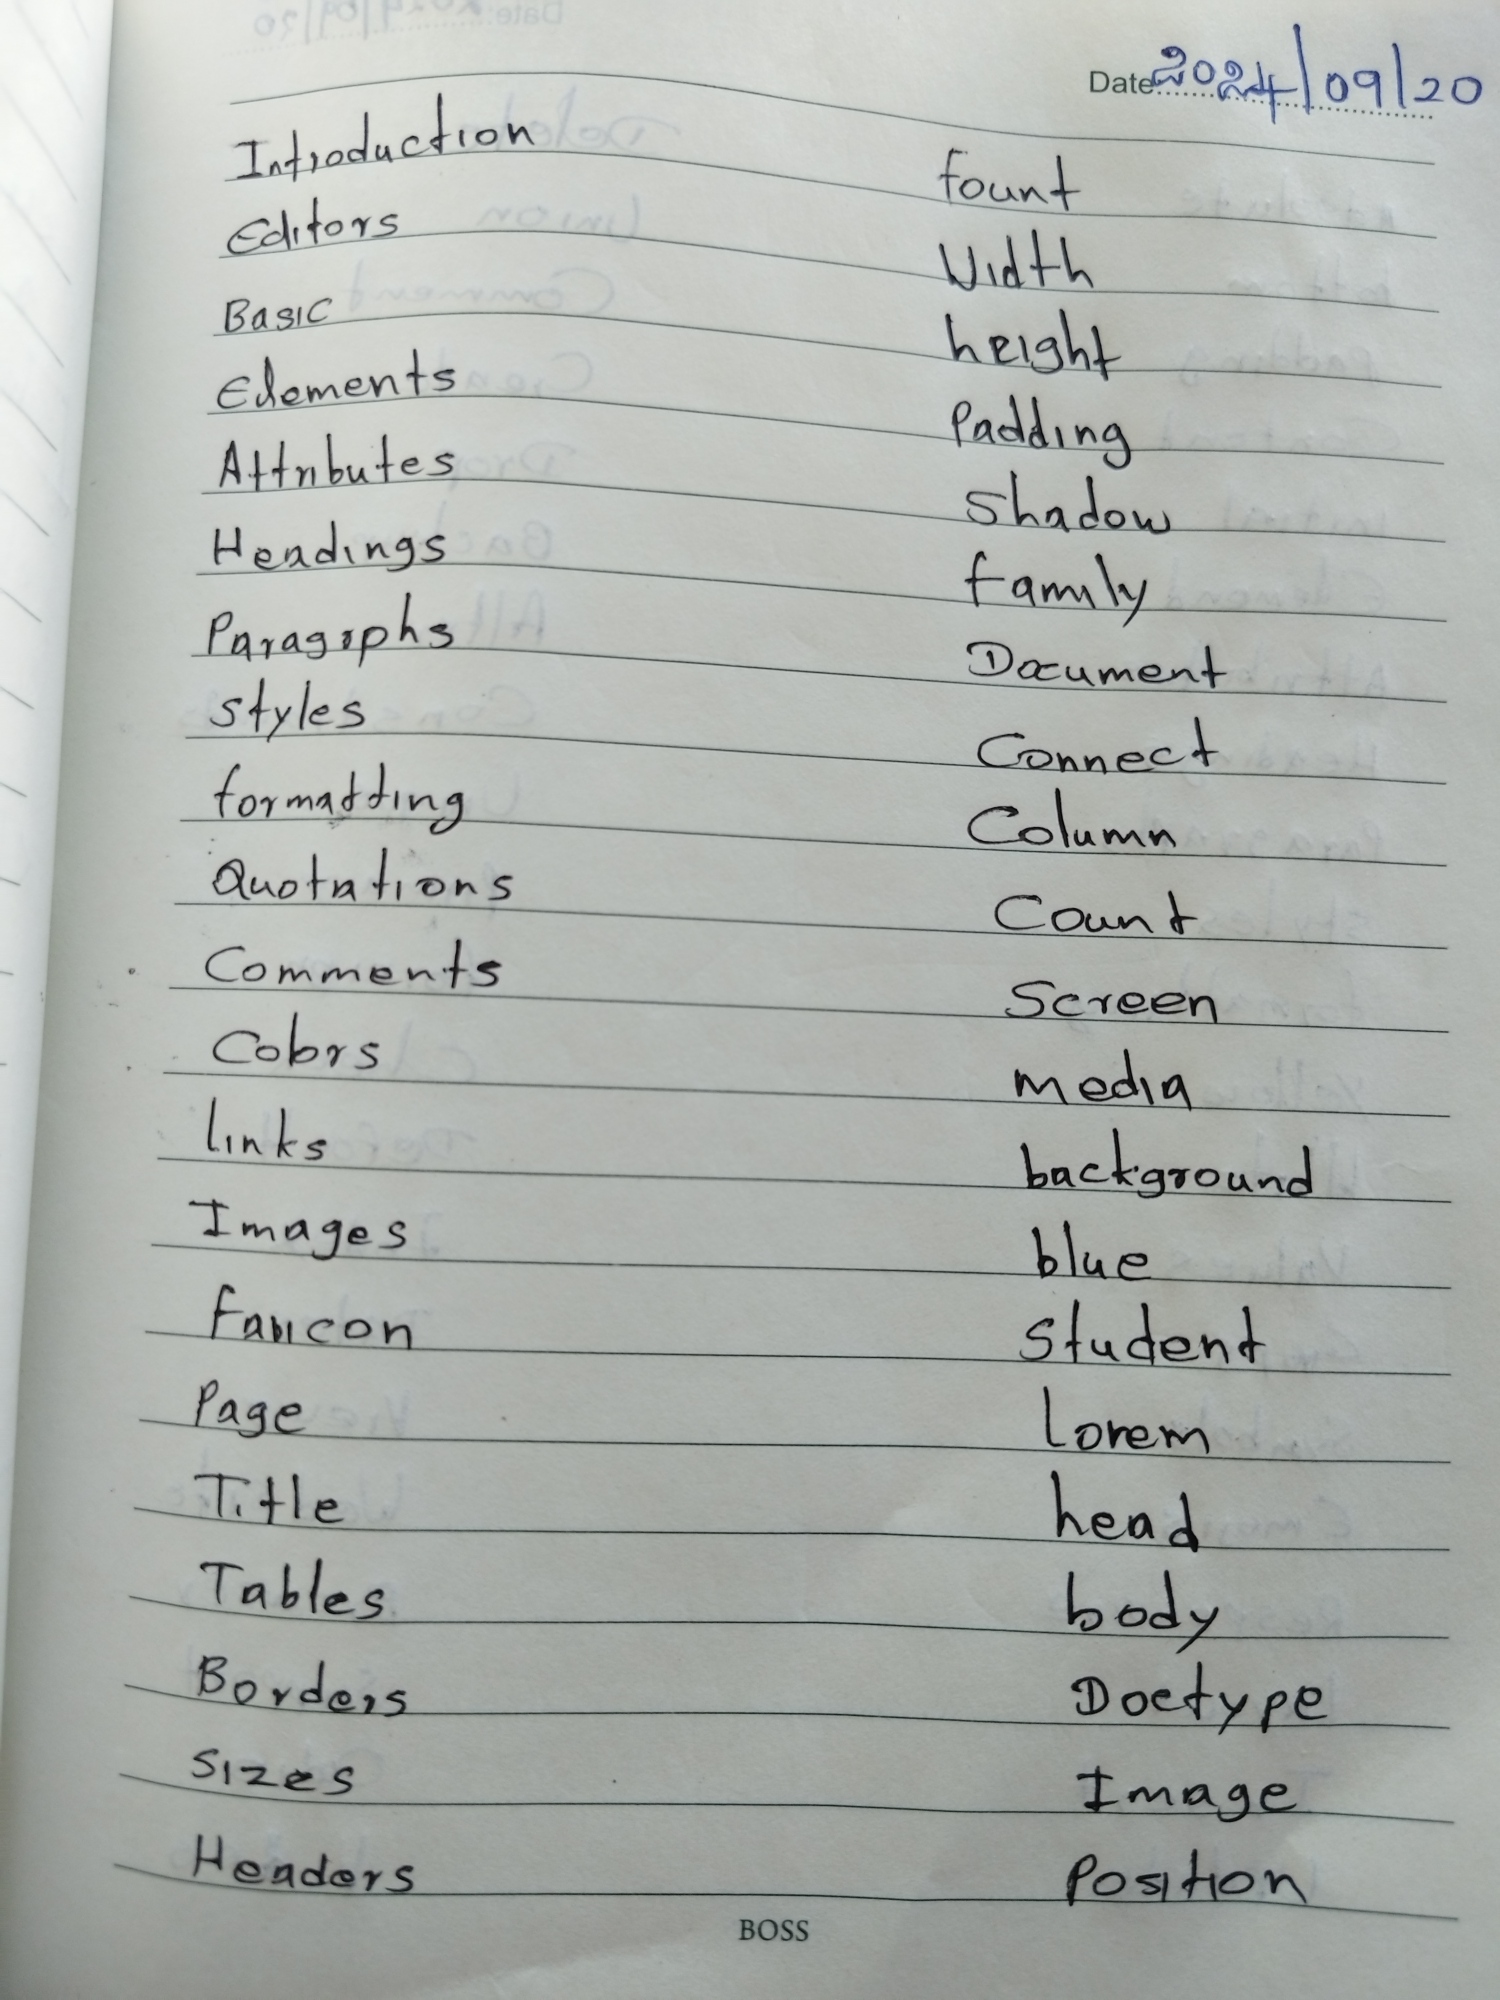 Date 2024/09/20
Introduction
Editors
Basic
Elements
Attributes
Headings
Paragrphs
styles
formatting
Quotations
Comments
Colors
links
Images
Favicon
Page
Title
Tables
Borders
Sizes
Headers
fount
Width
height
Padding
Shadow
family
Document
Connect
Column
Count
Screen
media
background
blue
Student
lorem
head
body
Doctype
Image
Position
BOSS